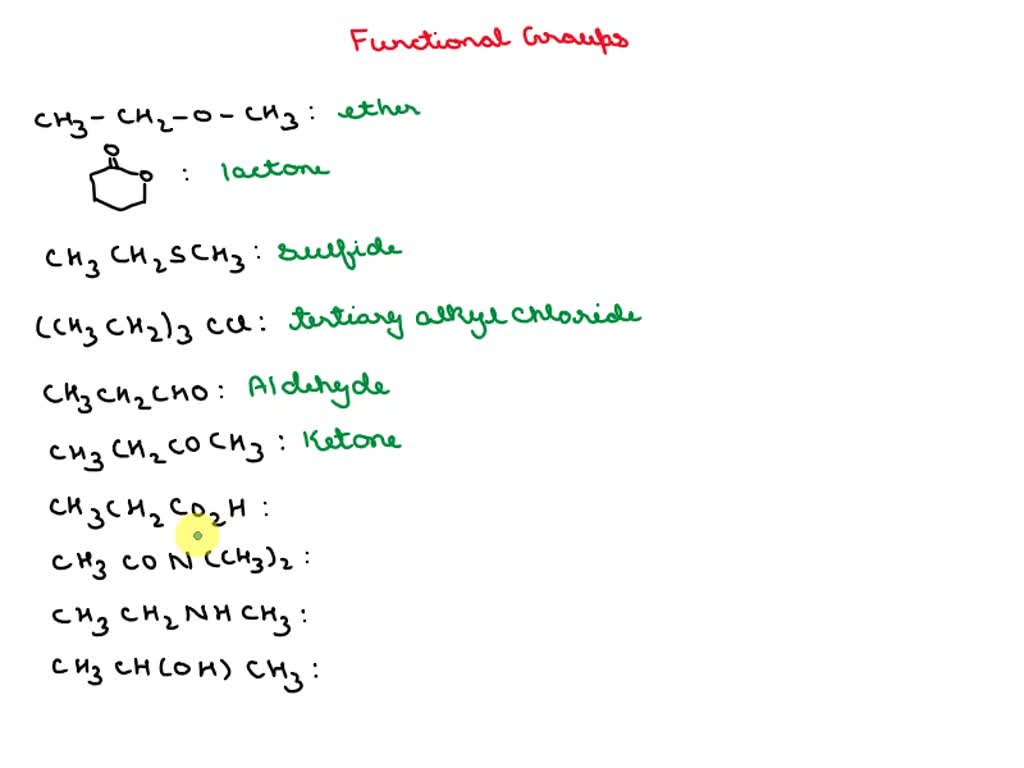 Functional Groups
CH3 - CH2 - O - CH3 : ether
O
O : lactone
CH3 CH2 S CH3 : Sulfide
(CH3 CH2)3 CCl : tertiary alkyl chloride
CH3CH2CHO : Aldehyde
CH3 CH2 CO CH3 : Ketone
CH3CH2CO2H :
CH3 CO N (CH3)2 :
CH3 CH2 NH CH3 :
CH3 CH(OH) CH3 :